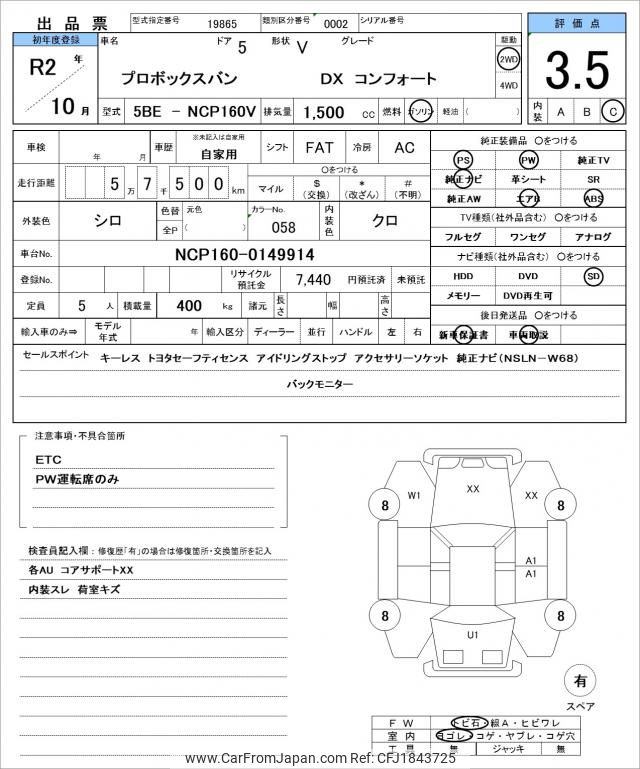 出品票 型式指定番号 19865 類別区分番号 0002 シリアル番号
評価点
3.5
内装 A B C
初年度登録
R2 年
10 月
車名 ドア 5 形状 V グレード 駆動
プロボックスバン DX コンフォート
2WD
4WD
型式 5BE － NCP160V 排気量 1,500 cc 燃料 ガソリン 軽油 ( )
車検 年 月 車歴 ※未記入は自家用 自家用 シフト FAT 冷房 AC
走行距離 5 万 7 千 5 0 0 km
〇をつける
マイル $ (交換) * (改ざん) # (不明)
外装色 シロ 色替 全P 元色 ( ) カラーNo. 058 内装色 クロ
車台No. NCP160-0149914
登録No. リサイクル預託金 7,440 円預託済 未預託
定員 5 人 積載量 400 kg 諸元 長さ 幅 高さ
輸入車のみ⇒ モデル年式 年 輸入区分 ディーラー 並行 ハンドル 左 右
純正装備品 〇をつける
PS PW 純正TV
純正ナビ 革シート SR
純正AW エアB ABS
TV種類(社外品含む) 〇をつける
フルセグ ワンセグ アナログ
ナビ種類(社外品含む) 〇をつける
HDD DVD SD
メモリー DVD再生可
後日発送品 〇をつける
新車保証書 車両取説
セールスポイント キーレス トヨタセーフティセンス アイドリングストップ アクセサリーソケット 純正ナビ(NSLN－W68)
バックモニター
注意事項・不具合箇所
ETC
PW運転席のみ
検査員記入欄：修復歴｢有｣の場合は修復箇所・交換箇所を記入
各AU コアサポートXX
内装スレ 荷室キズ
W1 XX XX
8 8
A1
A1
8 8
U1
有
スペア
FW トビ石・線A・ヒビワレ
室内 ヨゴレ・コゲ・ヤブレ・コゲ穴
工具 無 ジャッキ 無
www.CarFromJapan.com Ref: CFJ1843725